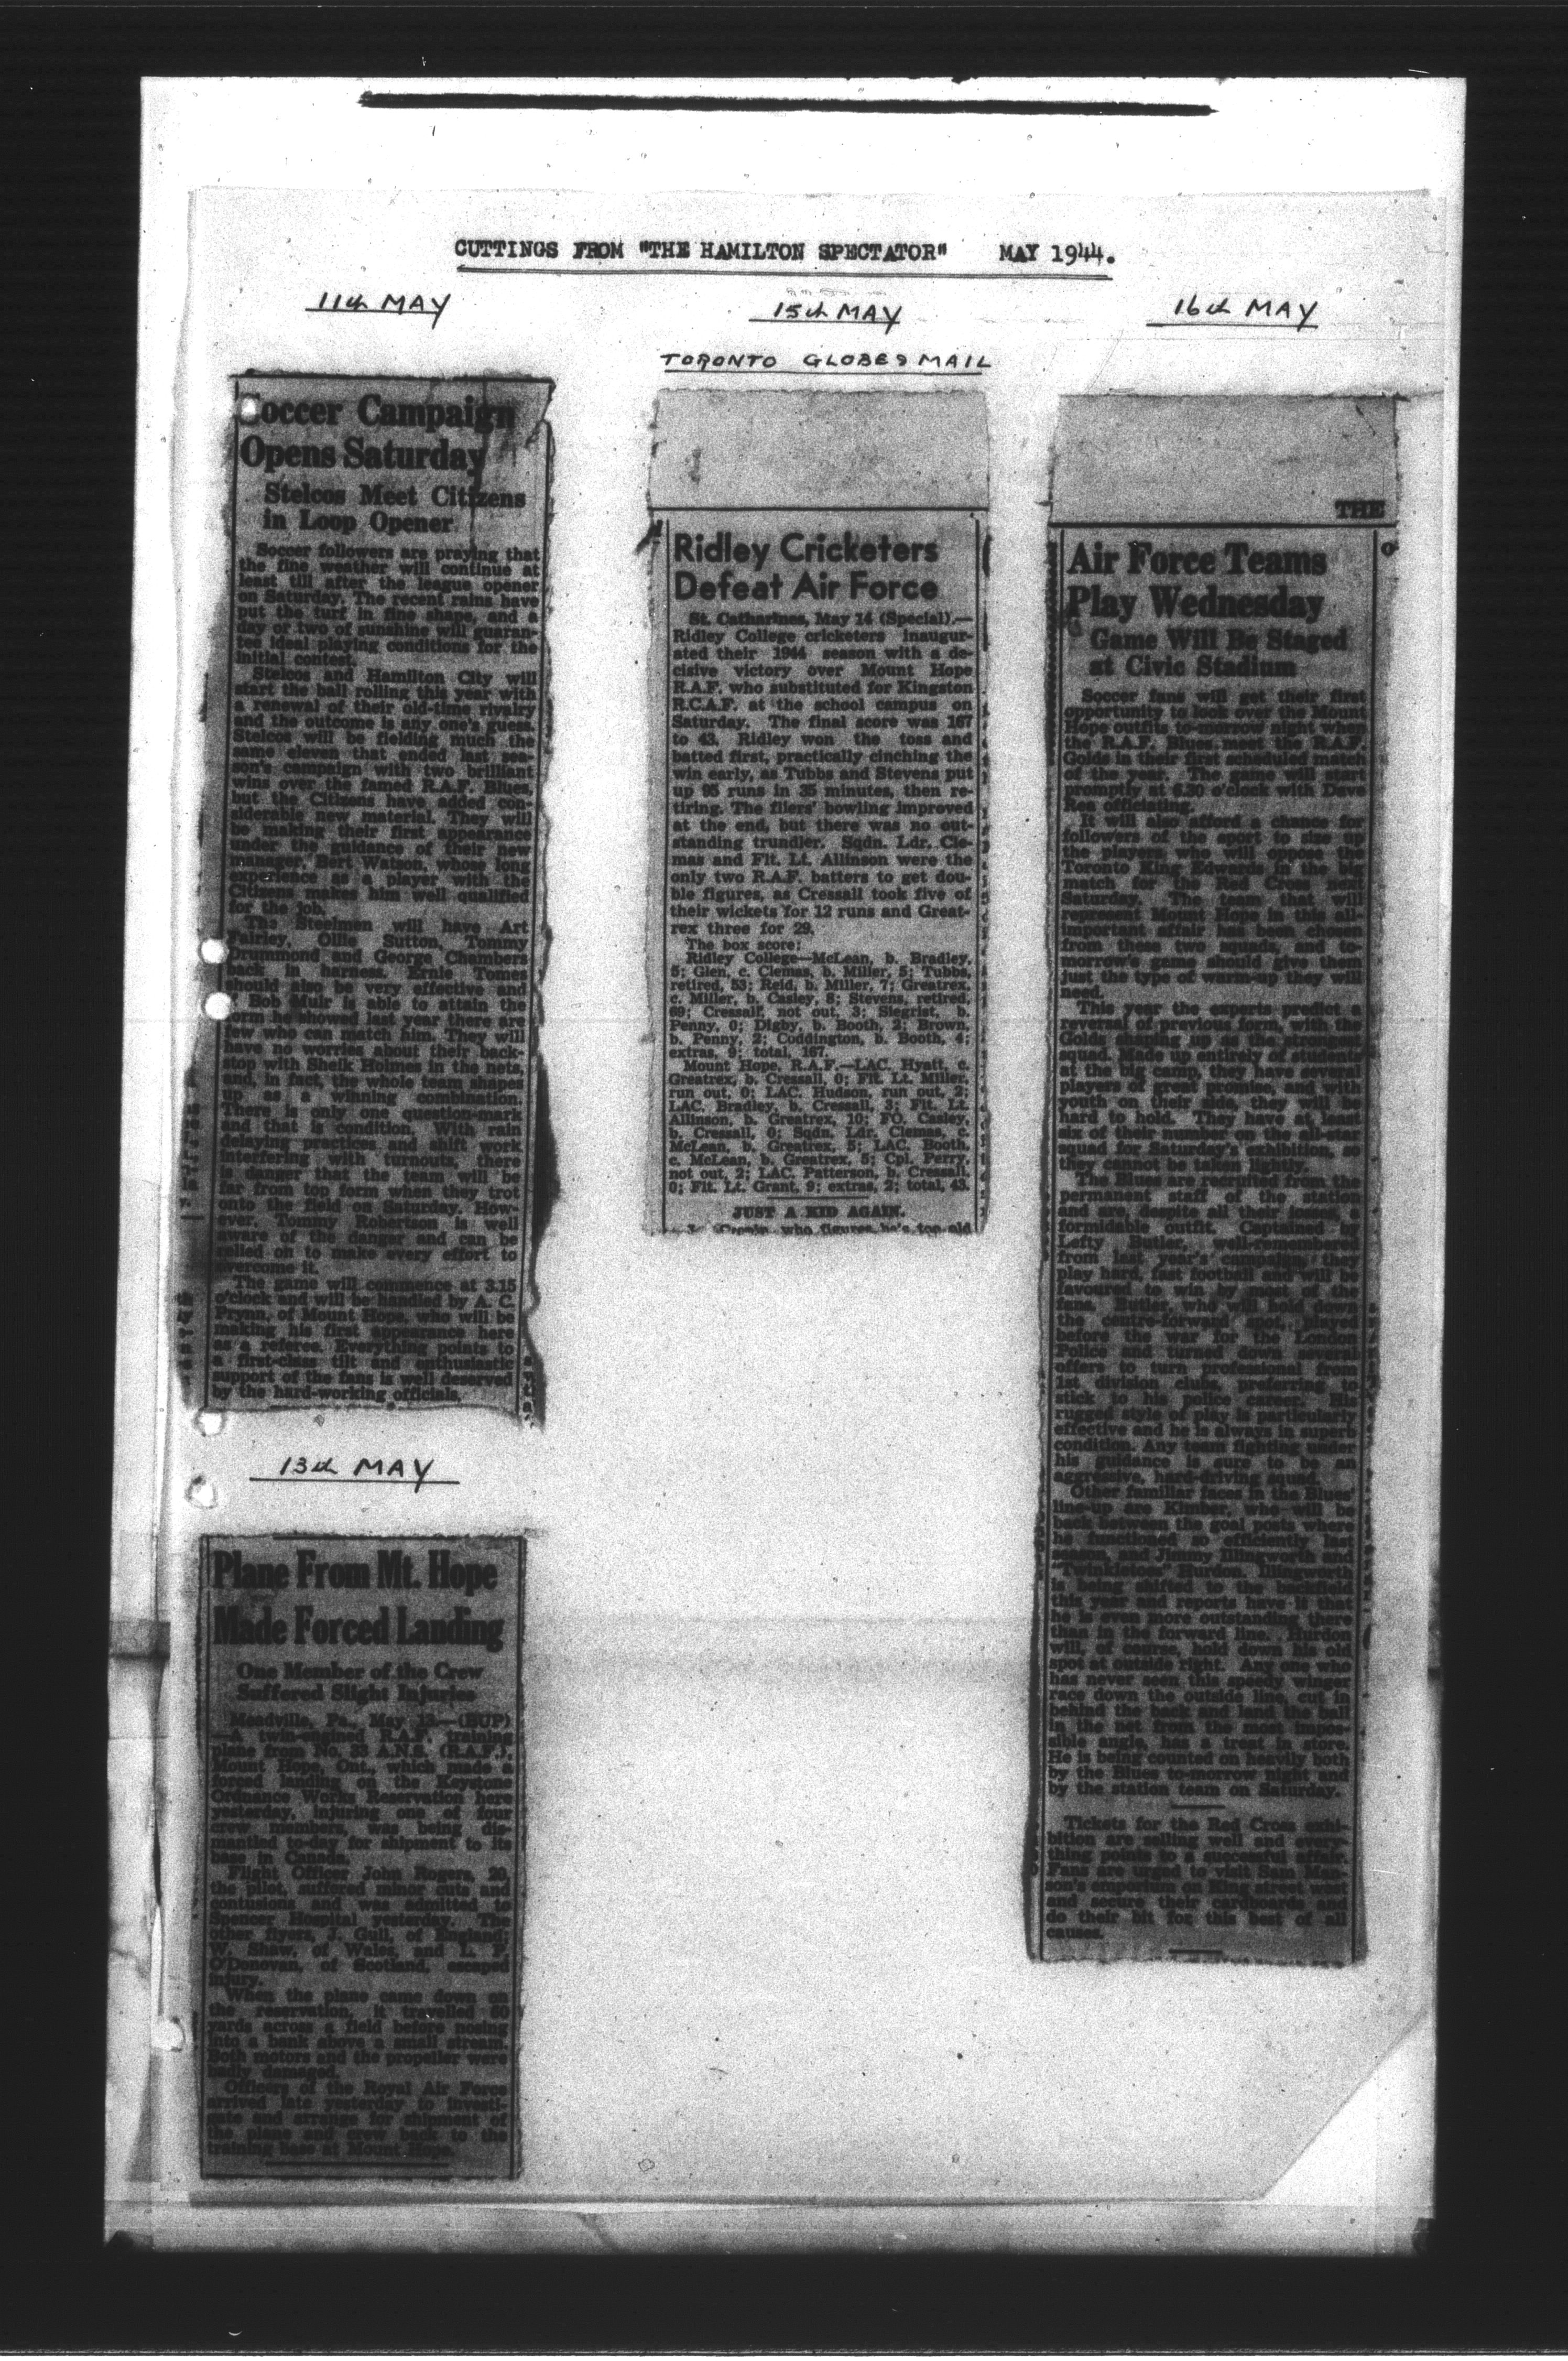 CUTTINGS FROM "THE HAMILTON SPECTATOR" MAY 1944.
11th MAY
Soccer Campaign
Opens Saturday
Stelcos Meet Citizens
in Loop Opener
Soccer followers are praying that
the fine weather will continue at
least till after the league opener
on Saturday. The recent rains have
put the turf in fine shape, and a
day or two of sunshine will guaran-
tee ideal playing conditions for the
initial contest.
Stelcos and Hamilton City will
start the ball rolling this year with
a renewal of their old-time rivalry
and the outcome is any one's guess.
Stelcos will be fielding much the
same eleven that ended last sea-
son's campaign with two brilliant
wins over the famed R.A.F. Blues,
but the Citizens have added con-
siderable new material. They will
be making their first appearance
under the guidance of their new
manager, Bert Watson, whose long
experience as a player with the
Citizens makes him well qualified
for the job.
The Steelmen will have Art
Fairley, Ollie Sutton, Tommy
Drummond and George Chambers
back in harness. Ernie Tomes
should also be very effective and
if Bob Muir is able to attain the
form he showed last year there are
few who can match him. They will
have no worries about their back-
stop with Sheik Holmes in the nets,
and, in fact, the whole team shapes
up as a winning combination.
There is only one question-mark
and that is condition. With rain
delaying practices and shift work
interfering with turnouts, there
is danger that the team will be
far from top form when they trot
onto the field on Saturday. How-
ever, Tommy Robertson is well
aware of the danger and can be
relied on to make every effort to
overcome it.
The game will commence at 3.15
o'clock and will be handled by A. C.
Prynn, of Mount Hope, who will be
making his first appearance here
as a referee. Everything points to
a first-class tilt and enthusiastic
support of the fans is well deserved
by the hard-working officials.
13th MAY
Plane From Mt. Hope
Made Forced Landing
One Member of the Crew
Suffered Slight Injuries
Meadville, Pa., May 13—(BUP)
—A twin-engined R.A.F. training
plane from No. 33 A.N.S. (R.A.F.),
Mount Hope, Ont., which made a
forced landing on the Keystone
Ordnance Works Reservation here
yesterday, injuring one of four
crew members, was being dis-
mantled to-day for shipment to its
base in Canada.
Flight Officer John Rogers, 20,
the pilot, suffered minor cuts and
contusions and was admitted to
Spencer Hospital yesterday. The
other flyers, J. Gull, of England;
W. Shaw, of Wales, and L. F.
O'Donovan, of Scotland, escaped
injury.
When the plane came down on
the reservation, it travelled 60
yards across a field before nosing
into a bank above a small stream.
Both motors and the propeller were
badly damaged.
Officers of the Royal Air Force
arrived late yesterday to investi-
gate and arrange for shipment of
the plane and crew back to the
training base at Mount Hope.
15th MAY
TORONTO GLOBE & MAIL
Ridley Cricketers
Defeat Air Force
St. Catharines, May 14 (Special).—
Ridley College cricketers inaugur-
ated their 1944 season with a de-
cisive victory over Mount Hope
R.A.F. who substituted for Kingston
R.C.A.F. at the school campus on
Saturday. The final score was 167
to 43. Ridley won the toss and
batted first, practically cinching the
win early, as Tubbs and Stevens put
up 95 runs in 35 minutes, then re-
tiring. The fliers' bowling improved
at the end, but there was no out-
standing trundler. Sqdn. Ldr. Cle-
mas and Flt. Lt. Allinson were the
only two R.A.F. batters to get dou-
ble figures, as Cressall took five of
their wickets for 12 runs and Great-
rex three for 29.
The box score:
Ridley College—McLean, b. Bradley,
5; Glen, c. Clemas, b. Miller, 5; Tubbs,
retired, 53; Reid, b. Miller, 7; Greatrex,
c. Miller, b. Casley, 8; Stevens, retired,
69; Cressall, not out, 3; Siegrist, b.
Penny, 0; Digby, b. Booth, 2; Brown,
b. Penny, 2; Coddington, b. Booth, 4;
extras, 9; total, 167.
Mount Hope, R.A.F.—LAC. Hyatt, c.
Greatrex, b. Cressall, 0; Flt. Lt. Miller,
run out, 0; LAC. Hudson, run out, 2;
LAC. Bradley, b. Cressall, 3; Flt. Lt.
Allinson, b. Greatrex, 10; FO. Casley,
b. Cressall, 0; Sqdn. Ldr. Clemas, c.
McLean, b. Greatrex, 5; LAC. Booth,
c. McLean, b. Greatrex, 5; Cpl. Perry,
not out, 2; LAC. Patterson, b. Cressall,
0; Flt. Lt. Grant, 9; extras, 2; total, 43.
JUST A KID AGAIN.
Cronin, who figures he's too old
16th MAY
THE
Air Force Teams
Play Wednesday
Game Will Be Staged
at Civic Stadium
Soccer fans will get their first
opportunity to look over the Mount
Hope outfits to-morrow night when
the R.A.F. Blues meet the R.A.F.
Golds in their first scheduled match
of the year. The game will start
promptly at 6.30 o'clock with Dave
Rea officiating.
It will also afford a chance for
followers of the sport to size up
the players who will oppose the
Toronto King Edwards in the big
match for the Red Cross next
Saturday. The team that will
represent Mount Hope in this all-
important affair has been chosen
from these two squads, and to-
morrow's game should give them
just the type of warm-up they will
need.
This year the experts predict a
reversal of previous form, with the
Golds shaping up as the strongest
squad. Made up entirely of students
at the big camp, they have several
players of great promise, and with
youth on their side, they will be
hard to hold. They have at least
six of their number on the all-star
squad for Saturday's exhibition, so
they cannot be taken lightly.
The Blues are recruited from the
permanent staff of the station
and are, despite all their losses, a
formidable outfit. Captained by
Lefty Butler, well-remembered
from last year's campaign, they
play hard, fast football and will be
favoured to win by most of the
fans. Butler, who will hold down
the centre-forward spot, played
before the war for the London
Police and turned down several
offers to turn professional from
1st division clubs, preferring to
stick to his police career. His
rugged style of play is particularly
effective and he is always in superb
condition. Any team fighting under
his guidance is sure to be an
aggressive, hard-driving squad.
Other familiar faces in the Blues'
line-up are Kimber, who will be
back between the goal posts where
he functioned so efficiently last
season, and Jimmy Illingworth and
"Twinkletoes" Hurdon. Illingworth
is being shifted to the backfield
this year and reports have it that
he is even more outstanding there
than in the forward line. Hurdon
will, of course, hold down his old
spot at outside right. Any one who
has never seen this speedy winger
race down the outside line, cut in
behind the back and land the ball
in the net from the most impos-
sible angle, has a treat in store.
He is being counted on heavily both
by the Blues to-morrow night and
by the station team on Saturday.
Tickets for the Red Cross exhi-
bition are selling well and every-
thing points to a successful affair.
Fans are urged to visit Sam Man-
son's emporium on King street west
and secure their cardboards and
do their bit for this best of all
causes.